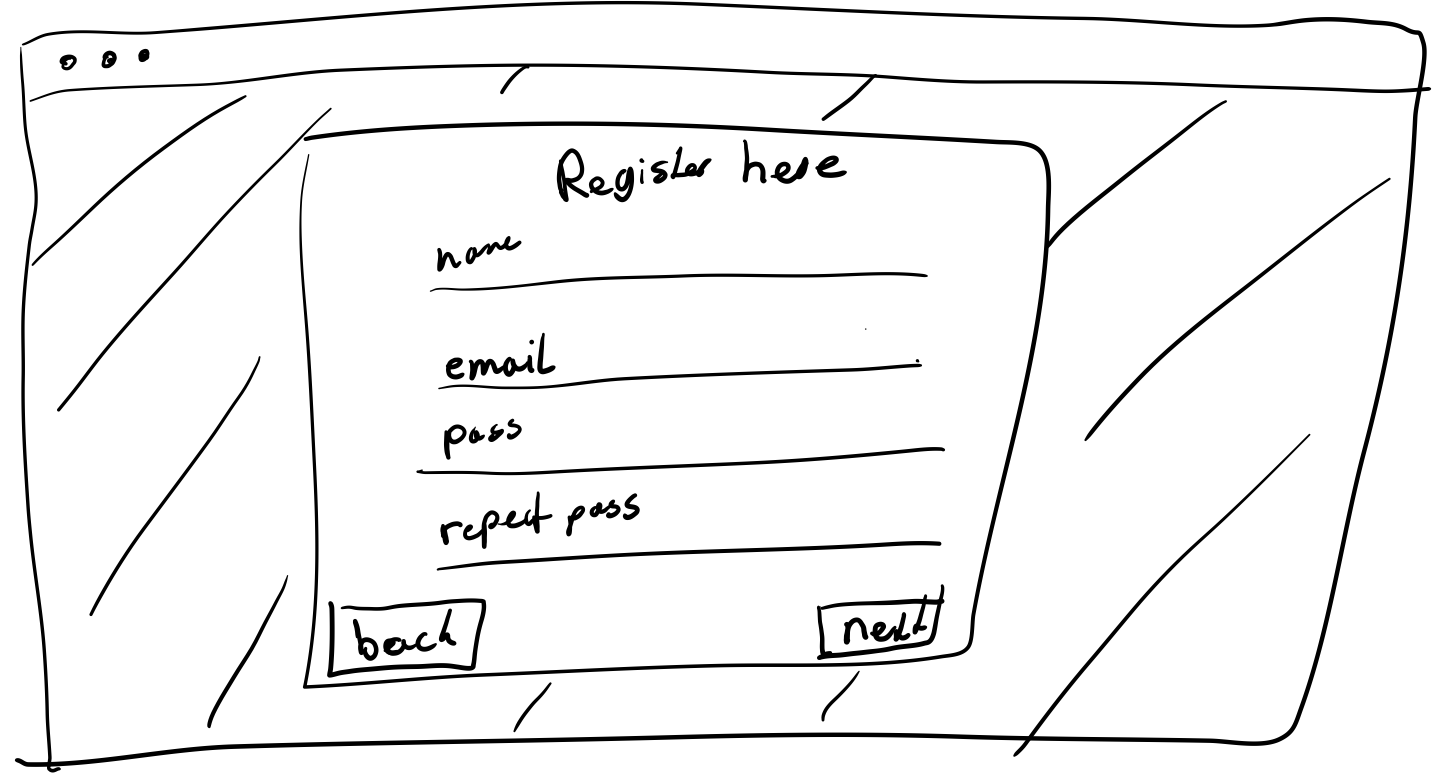 Register here
name
email
pass
repeat pass
back
next